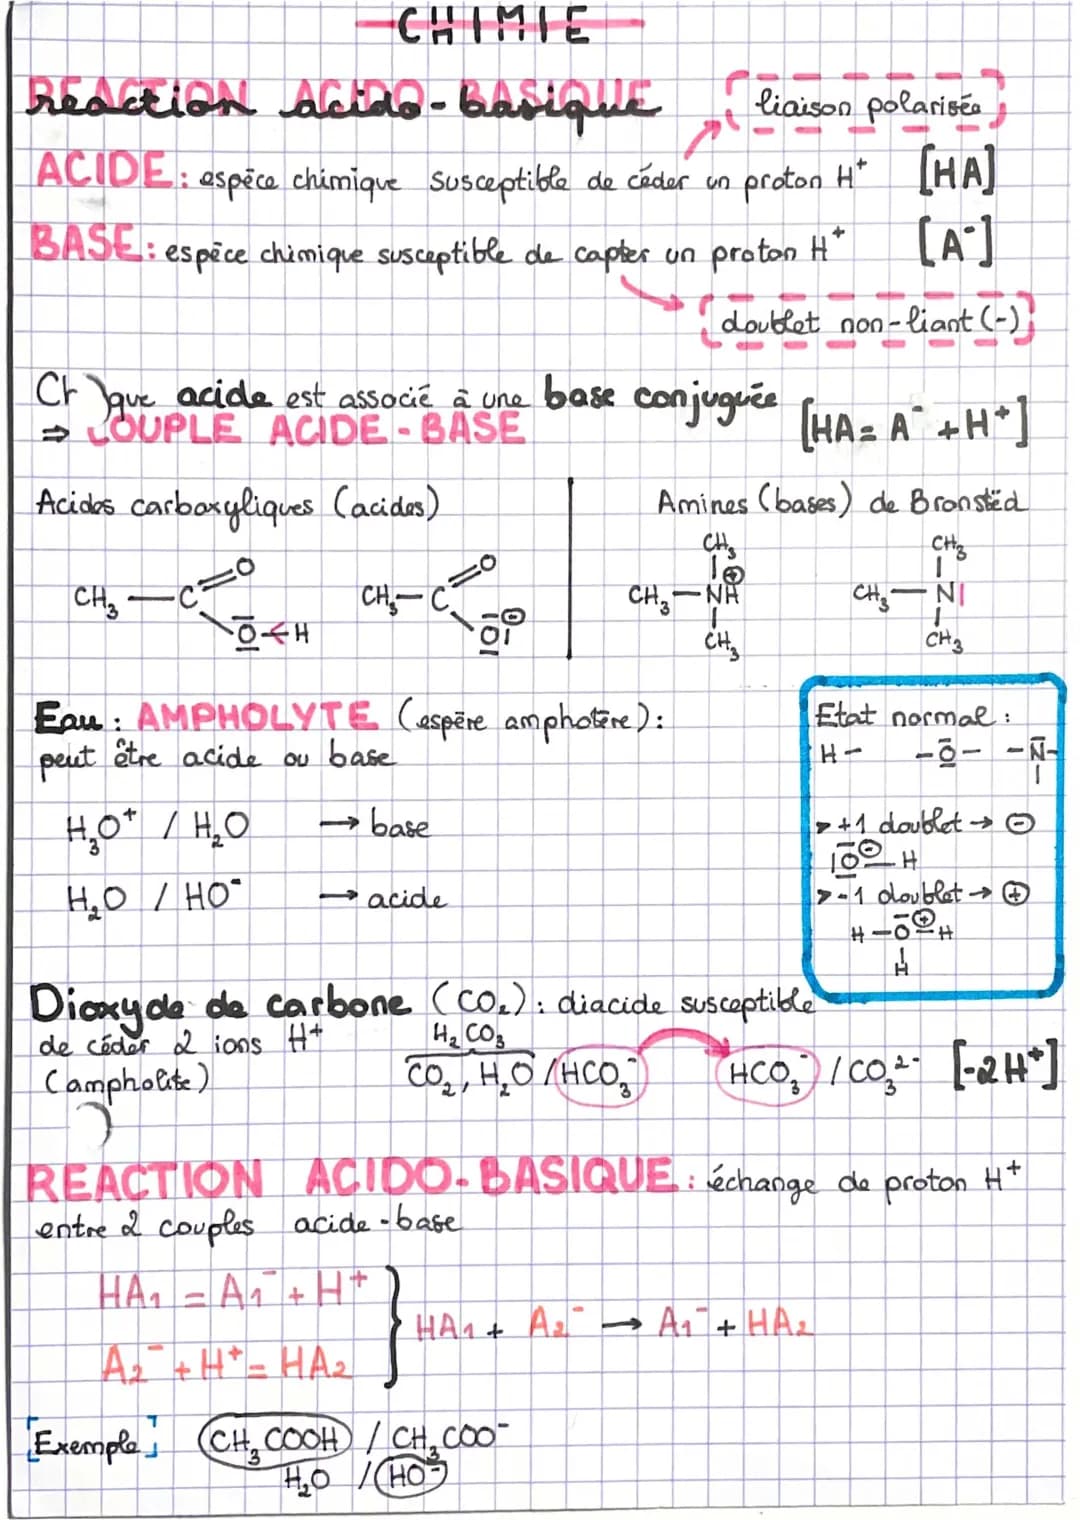 CHIMIE
REACTION ACIDO-BASIQUE
Réaction acido-basique
liaison polarisée
ACIDE: espèce chimique susceptible de céder un proton H⁺ [HA]
BASE: espèce chimique susceptible de capter un proton H⁺ [A⁻]
doublet non-liant (-)
que acide est associé à une base conjuguée
⇒ COUPLE ACIDE-BASE [HA = A⁻ + H⁺]
Acides carboxyliques (acides)
Amines (bases) de Bronstëd
CH₃ — C O O H
CH₃ — C O O ⊖
CH₃ CH₃ — NH ⊕ CH₃
CH₃ CH₃ — N| CH₃
Eau : AMPHOLYTE (espère amphotère) :
peut être acide ou base
H₃O⁺ / H₂O → base
H₂O / HO⁻ → acide
Etat normal :
H- -O- -N-
> +1 doublet → ⊖
|O⊖ - H
> -1 doublet → ⊕
H - O⊕ - H
H
Dioxyde de carbone (CO₂) : diacide susceptible
de céder 2 ions H⁺
H₂CO₃
(ampholite) CO₂, H₂O / HCO₃⁻ HCO₃⁻ / CO₃²⁻ [-2H⁺]
REACTION ACIDO-BASIQUE : échange de proton H⁺
entre 2 couples acide-base
HA₁ = A₁⁻ + H⁺
HA₁ + A₂⁻ → A₁⁻ + HA₂
A₂⁻ + H⁺ = HA₂
[Exemple] CH₃COOH / CH₃COO⁻
H₂O / HO⁻